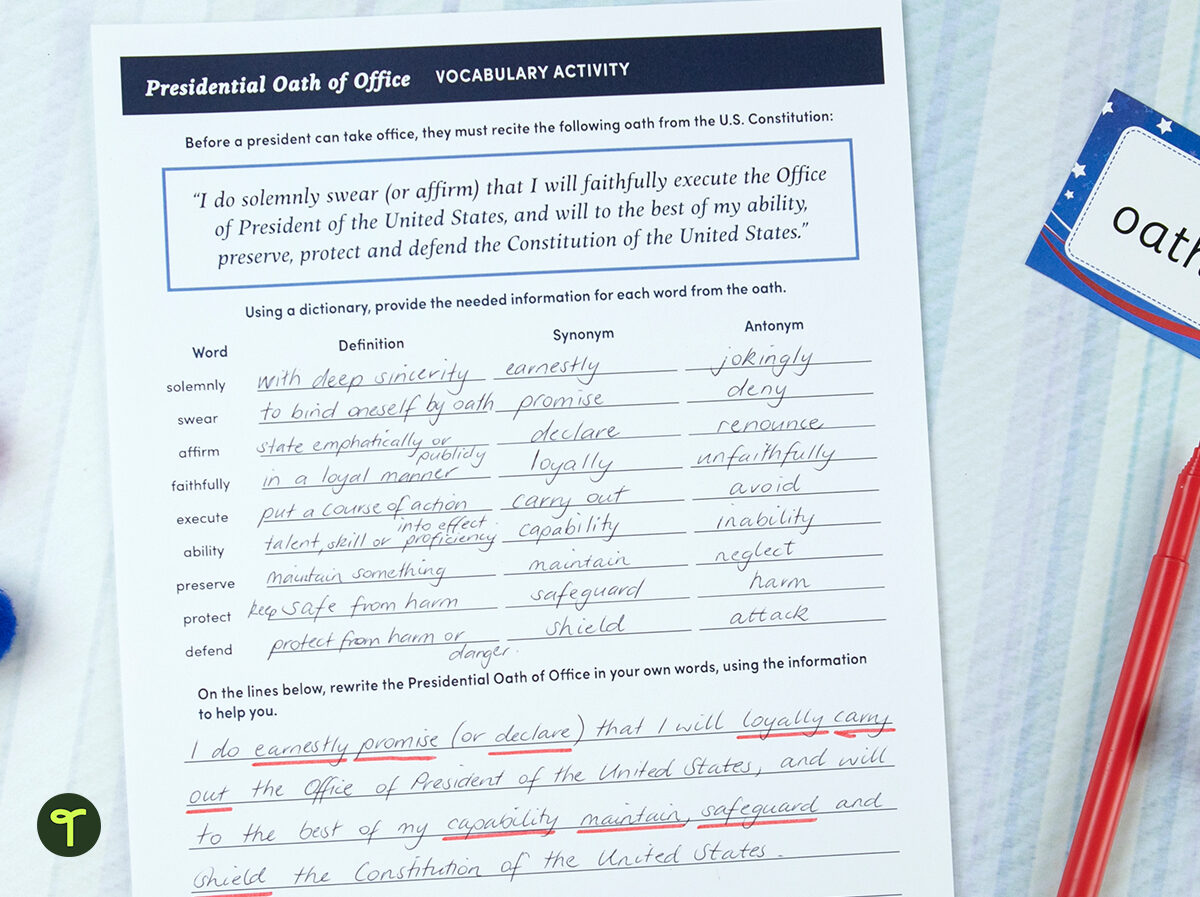 Presidential Oath of Office VOCABULARY ACTIVITY
Before a president can take office, they must recite the following oath from the U.S. Constitution:
“I do solemnly swear (or affirm) that I will faithfully execute the Office
of President of the United States, and will to the best of my ability,
preserve, protect and defend the Constitution of the United States.”
Using a dictionary, provide the needed information for each word from the oath.
Word Definition Synonym Antonym
solemnly with deep sincerity earnestly jokingly
swear to bind oneself by oath promise deny
affirm state emphatically or publicly declare renounce
faithfully in a loyal manner loyally unfaithfully
execute put a course of action into effect. carry out avoid
ability talent, skill or proficiency capability inability
preserve maintain something maintain neglect
protect keep safe from harm safeguard harm
defend protect from harm or danger. shield attack
On the lines below, rewrite the Presidential Oath of Office in your own words, using the information
to help you.
I do earnestly promise (or declare) that I will loyally carry
out the Office of President of the United States, and will
to the best of my capability maintain, safeguard and
shield the Constitution of the United States.
oath